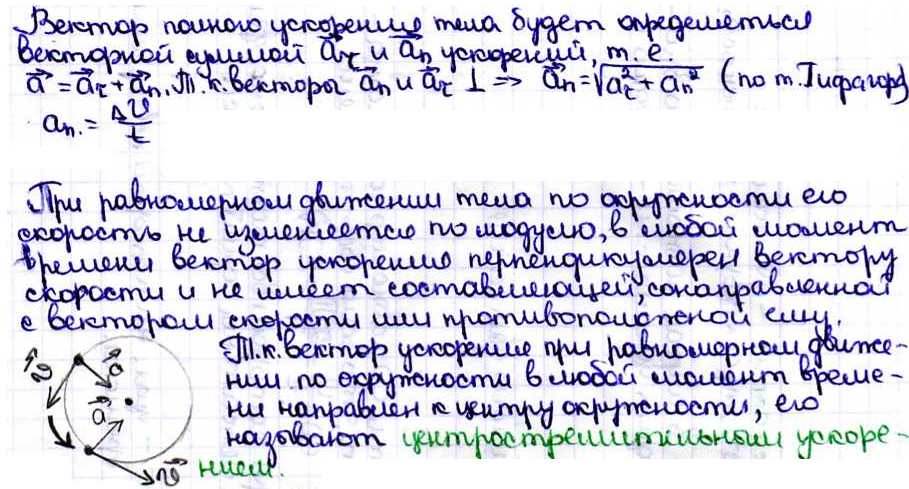 Вектор полного ускорения тела будет определяться
векторной суммой a⃗τ и a⃗n ускорений, т.е.
a⃗ = a⃗τ + a⃗n. Т.к. векторы a⃗n и a⃗τ ⊥ => a⃗n = √(aτ² + an²) (по т. Пифагора)
an. = Δv/t
При равномерном движении тела по окружности его
скорость не изменяется по модулю, в любой момент
времени вектор ускорения перпендикулярен вектору
скорости и не имеет составляющей, сонаправленной
с вектором скорости или противоположной ему.
Т.к. вектор ускорения при равномерном движе-
нии по окружности в любой момент време-
ни направлен к центру окружности, его
называют центростремительным ускоре-
нием.
v⃗
a⃗
a⃗
v⃗